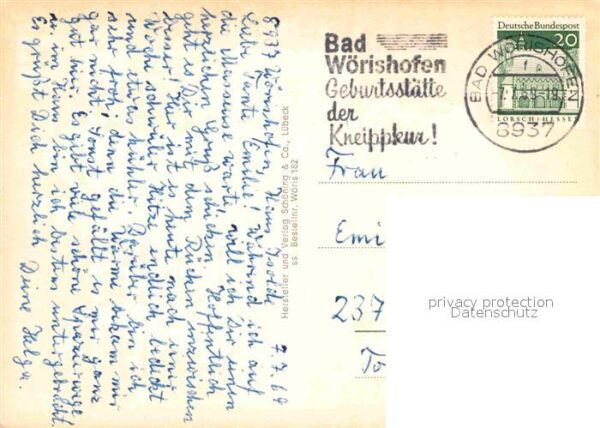 8937 Wörishofen, Haus Isolde
7.7.69
Liebe Tante Emilie! Während ich auf
die Massage warte, will ich Dir einen
herzlichen Gruß schicken. Hoffentlich
geht es Dir mit dem Rücken inzwischen
besser. Hier ist es heute nach einer
Woche schwüler Hitze endlich bedeckt
und etwas kühler. Darüber bin ich
sehr froh, denn die Wärme bekam mir
gar nicht. Sonst gefällt es mir ganz
gut hier. Es gibt viele schöne Spazierwege
u. im Haus bin ich bestens untergebracht.
Es grüßt Dich herzlich Deine Helga.
Hersteller und Verlag Schöning & Co., Lübeck
ss Bestellnr. Wöris 182
Bad
Wörishofen
Geburtsstätte
der
Kneippkur!
BAD WÖRISHOFEN
8937
Deutsche Bundespost
20
LORSCH/HESSEN
Frau
Emi
237
privacy protection
Datenschutz